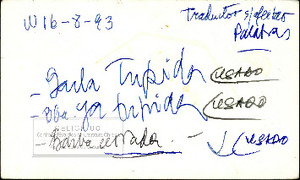 W16-8-93
Traductor
Palabras
- Barba Tupida (USADO
- Oba ya tupida (USADO
- Barba cerrada - (USADO